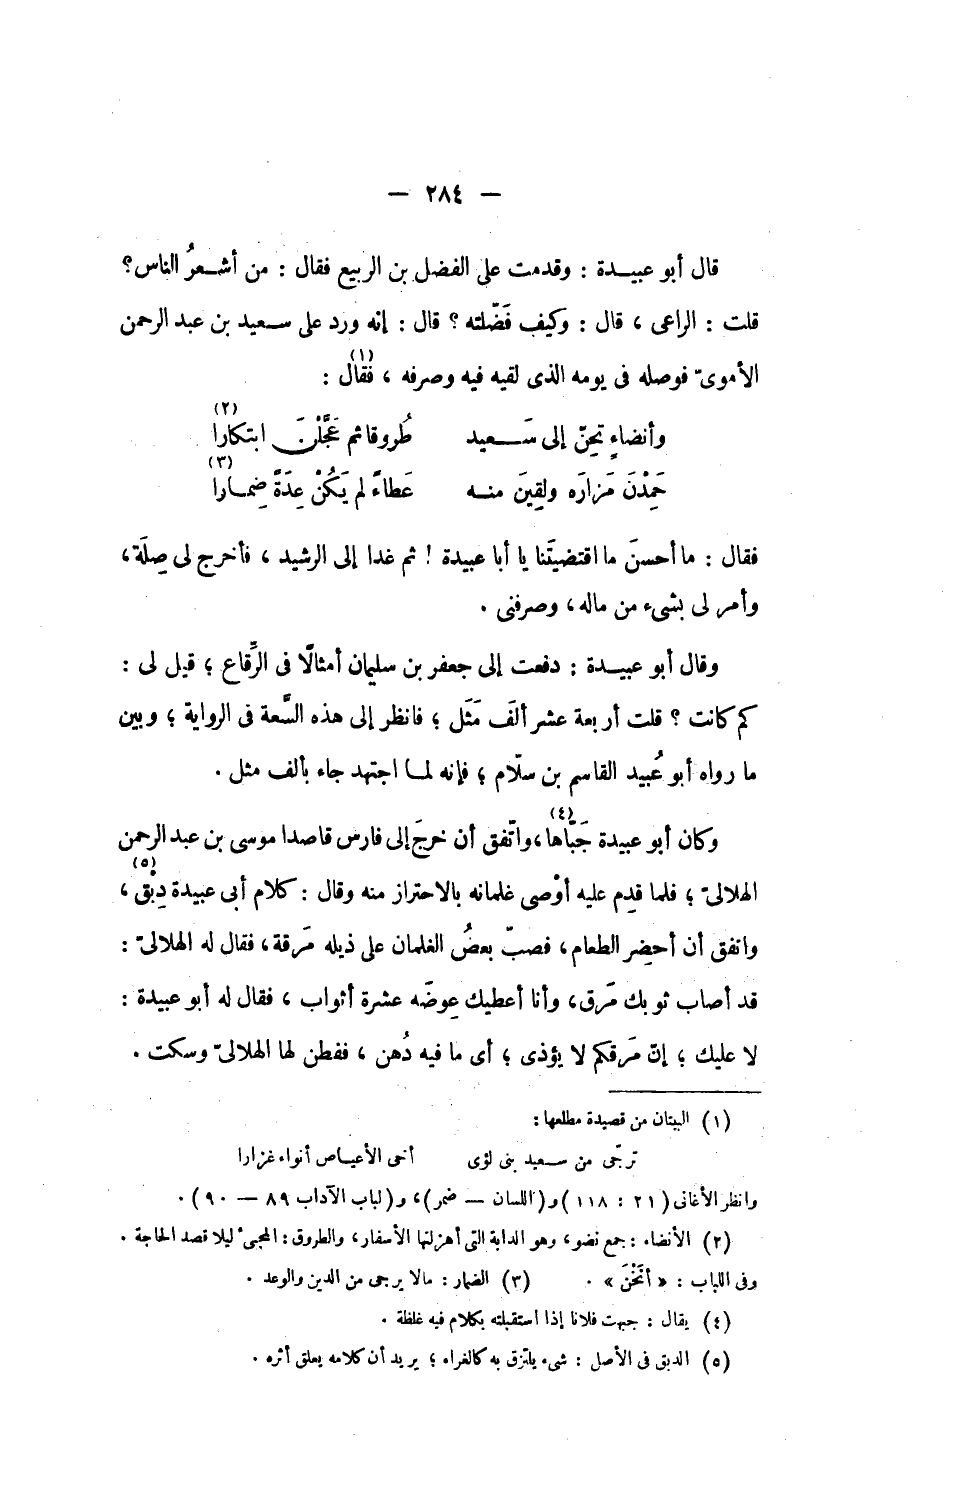 — ٢٨٤ —
قال أبو عبيدة : وقدمت على الفضل بن الربيع فقال : من أشعرُ الناس؟
قلت : الراعى ، قال : وكيف فَضّلته ؟ قال : إنه ورد على سعيد بن عبد الرحمن
الأموىّ فوصله فى يومه الذى لقيه فيه وصرفه ، فقال (١) :
وأنضاءٍ تحِنّ إلى سَعيد طُروقا ثم عَجَّلْنَ ابتكارا (٢)
حَمِدْنَ مَزارَه ولقِينَ منه عَطاءً لم يَكُنْ عِدَةً ضِمارا (٣)
فقال : ما أحسنَ ما اقتضيتَنا يا أبا عبيدة ! ثم غدا إلى الرشيد ، فأخرج لى صِلَة ،
وأمر لى بشىء من ماله ، وصرفنى .
وقال أبو عبيدة : دفعت إلى جعفر بن سليمان أمثالًا فى الرِّقاع ؛ قيل لى :
كم كانت ؟ قلت أربعة عشر ألفَ مَثَل ؛ فانظر إلى هذه السَّعة فى الرواية ؛ وبين
ما رواه أبو عُبيد القاسم بن سلّام ؛ فإنه لما اجتهد جاء بألف مثل .
وكان أبو عبيدة جَبّاها (٤) ، واتّفق أن خرجَ إلى فارس قاصدا موسى بن عبد الرحمن
الهلالىّ ؛ فلما قدِم عليه أوْصى غلمانه بالاحتراز منه وقال : كلام أبى عبيدة دِبْق (٥) ،
واتفق أن أحضِر الطعام ، فصبّ بعضُ الغلمان على ذيله مَرقة ، فقال له الهلالىّ :
قد أصاب ثوبك مَرق ، وأنا أعطيك عِوضَه عشرة أثواب ، فقال له أبو عبيدة :
لا عليك ؛ إنّ مَرقكم لا يؤذى ؛ أى ما فيه دُهن ، ففطن لها الهلالىّ وسكت .
(١) البيتان من قصيدة مطلعها :
ترجّى من سعيد بنى لؤى أخى الأعياص أنواء غزارا
وانظر الأغانى ( ٢١ : ١١٨ ) و ( اللسان — ضمر ) ، و ( لباب الآداب ٨٩ — ٩٠ ) .
(٢) الأنضاء : جمع نضو ، وهو الدابة التى أهزلتها الأسفار ، والطروق : المجىء ليلا قصد الحاجة .
وفى اللباب : « أنَخْنَ » . (٣) الضمار : مالا يرجى من الدين والوعد .
(٤) يقال : جبهت فلانا إذا استقبلته بكلام فيه غلظة .
(٥) الدبق فى الأصل : شىء يلتزق به كالغراء ؛ يريد أن كلامه يعلق أثره .